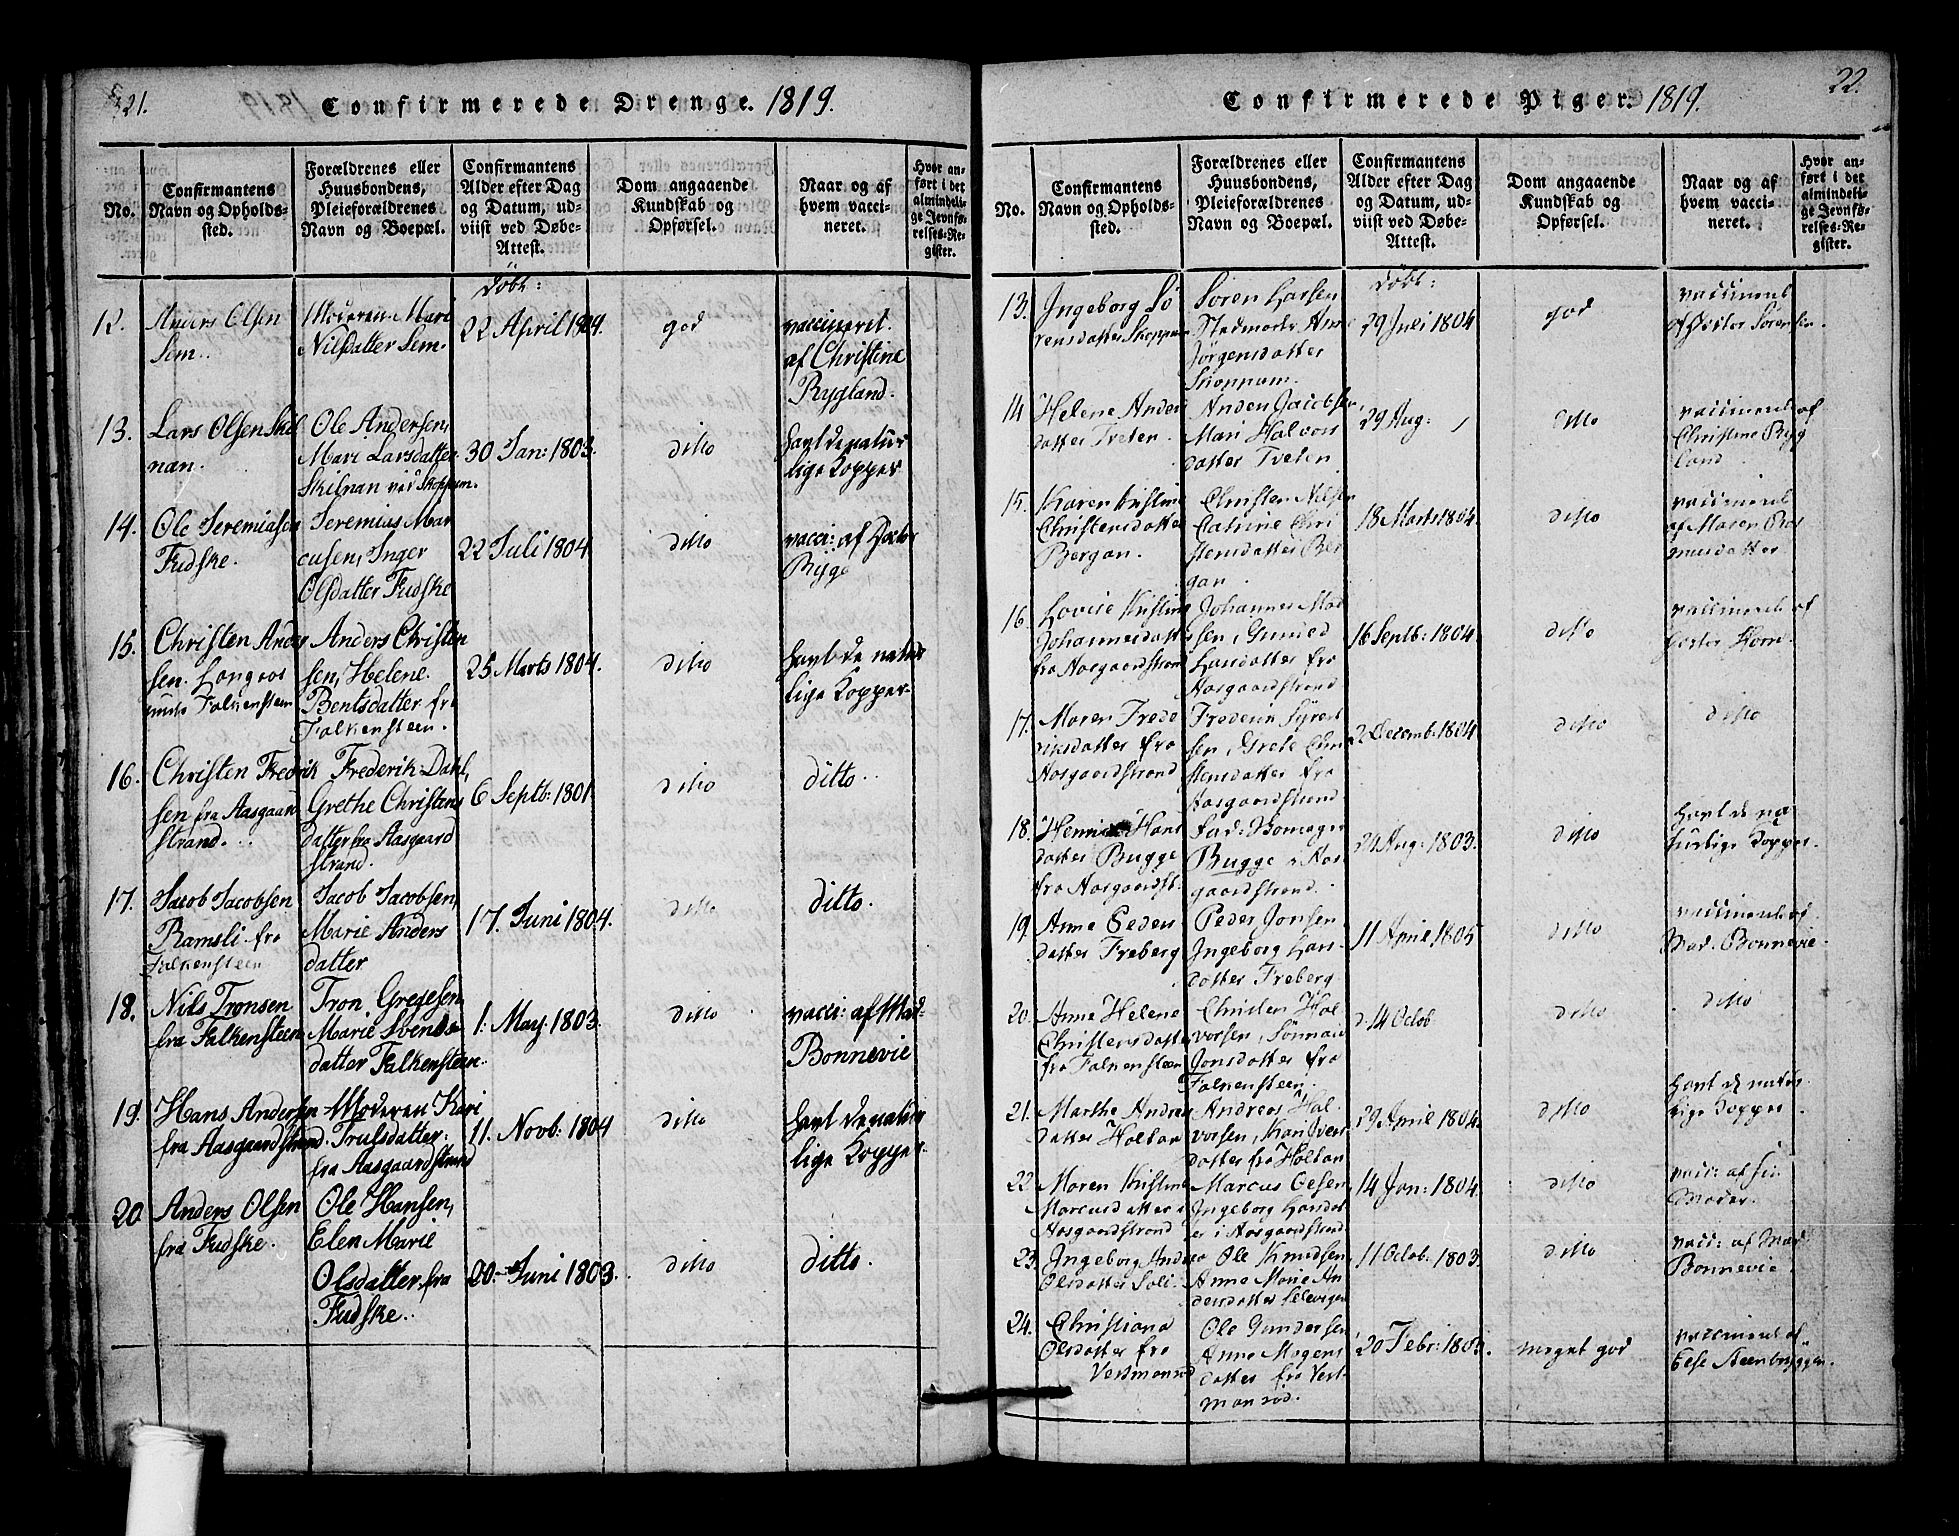 21.
Confirmerede Drenge. 1819.
No.
Confirmantens
Navn og Opholds-
sted.
Forældrenes eller
Huusbondens,
Pleieforældrenes
Navn og Boepæl.
Confirmantens
Alder efter Dag
og Datum, ud-
viist ved Døbe-
Attest.
Dom angaaende
Kundskab og
Opførsel.
Naar og af
hvem vacci-
neret.
Hvor an-
ført i det
almindeli-
ge Jevnfø-
relses-Re-
gister.
12.
Anders Olsen
Sem.
Moderen Mari
Nilsdatter Sem.
Döbt:
22 April 1804.
god
vaccineret
af Christine
Rygland.
13.
Lars Olsen Skil
nan.
Ole Andersen,
Mari Larsdatter
Skilnan ved Skoppum.
30 Jan: 1803.
ditto
havt de natur
lige Kopper
14.
Ole Jeremiasen
Fudske.
Jeremias Mar
cusen, Inger
Olsdatter Fudske
22 Juli 1804.
ditto
vacci: af Doctor
15.
Christen Anders
sen.
Falkensteen
Anders Christen
sen, Helene
Bentsdatter fra
Falkensteen.
25 Marts 1804.
ditto
havt de natur
lige Kopper
16.
Christen Fredrik
sen fra Aasgaard
strand.
Frederik Dahl,
Grethe Christens
datter fra Aasgaard
strand.
6 Septb: 1801.
ditto
ditto
17.
Jacob Jacobsen
Ramsli fra
Falkensteen
Jacob Jacobsen,
Marie Anders
datter
17. Juni 1804.
ditto
ditto.
18.
Nils Tronsen
fra Falkensteen
Tron Gregesen
Marie Svends
datter Falkensteen.
1. May. 1803.
ditto
vacci: af Mad.
Bonnevie
19.
Hans Andersen
fra Aasgaardstrand.
Moderen Kari
Trulsdatter
fra Aasgaardstrand
11. Novb: 1804
ditto
havt de natur
lige Kopper.
20
Anders Olsen
fra Fudske.
Ole Hansen,
Elen Marie
Olsdatter fra
Fudske.
20. Juni 1803.
ditto
ditto.
22.
Confirmerede Piger. 1819.
No.
Confirmantens
Navn og Opholds-
sted.
Forældrenes eller
Huusbondens,
Pleieforældrenes
Navn og Boepæl.
Confirmantens
Alder efter Dag
og Datum, ud-
viist ved Døbe-
Attest.
Dom angaaende
Kundskab og
Opførsel.
Naar og af
hvem vacci-
neret.
Hvor an-
ført i det
almindeli-
ge Jevnfø-
relses-Re-
gister.
13.
Ingeborg Sö
rensdatter Skoppum
Sören Larsen
Stedmoder Anne
Jörgensdatter
Skoppum.
Döbt:
29 Juli 1804
god
vaccineret
Sörensen.
14
Helene Anders
datter Tveten.
Anders Jacobsen,
Mari Halvors
datter Tveten
29 Aug:
ditto
vaccineret af
Christine Ryg
land.
15.
Karen Kristine
Christensdatter
Bergan.
Christen Nilsen
Catrine Chri
stensdatter Ber
gan.
18 Marts 1804.
ditto
vaccineret
af Maren Ras
musdatter
16.
Lovise Kristine
Johannesdatter
fra Aasgaardstrand
Johannes Mad
sen,
Larsdatter fra
Aasgaardstrand
16 Septb: 1804.
ditto
vaccineret af
17.
Maren Frede
riksdatter fra
Aasgaardstrand
Frederik
sen, Grete Chri
stensdatter fra
Aasgaardstrand
2 Decemb: 1804
ditto
ditto
18.
Hans
datter Bugge
fra Aasgaardst.
Bugge
gaardstrand.
24 Aug: 1803.
ditto
havt de na
turlige Kopper.
19
Anne Peders
datter Freberg
Peder Jonsen
Ingeborg Lars
datter Freberg
11 April 1805
ditto
vaccineret af
Mad. Bonnevie.
20.
Anne Helene
Christensdatter
fra Falkensteen
Christen Hal
vorsen,
Jonsdatter fra
Falkensteen.
14 Octob
ditto
ditto
21.
Marthe Andrea
datter Holtan
Andreas Hal
vorsen, Kari Ivers
datter fra Holtan
29 April 1804.
ditto
havt de natur
lige Kopper
22.
Maren Kristine
Marcusdatter i
Aasgaardstrand
Marcus
Ingeborg
er i Aasgaardstrand
14 Jan: 1804.
ditto
vacc: af sin
Moder.
23.
Ingeborg Andrea
Olesdatter Soli.
Ole Knudsen
Anne Marie An
dersdatter
11 Octob. 1803.
ditto
vacc: af Mad
Bonnevie
24.
Christiana
Olsdatter fra
Ole Gundersen
Anne Mogens
datter fra Vest
manröd.
20 Febr:
meget god
vaccineret af